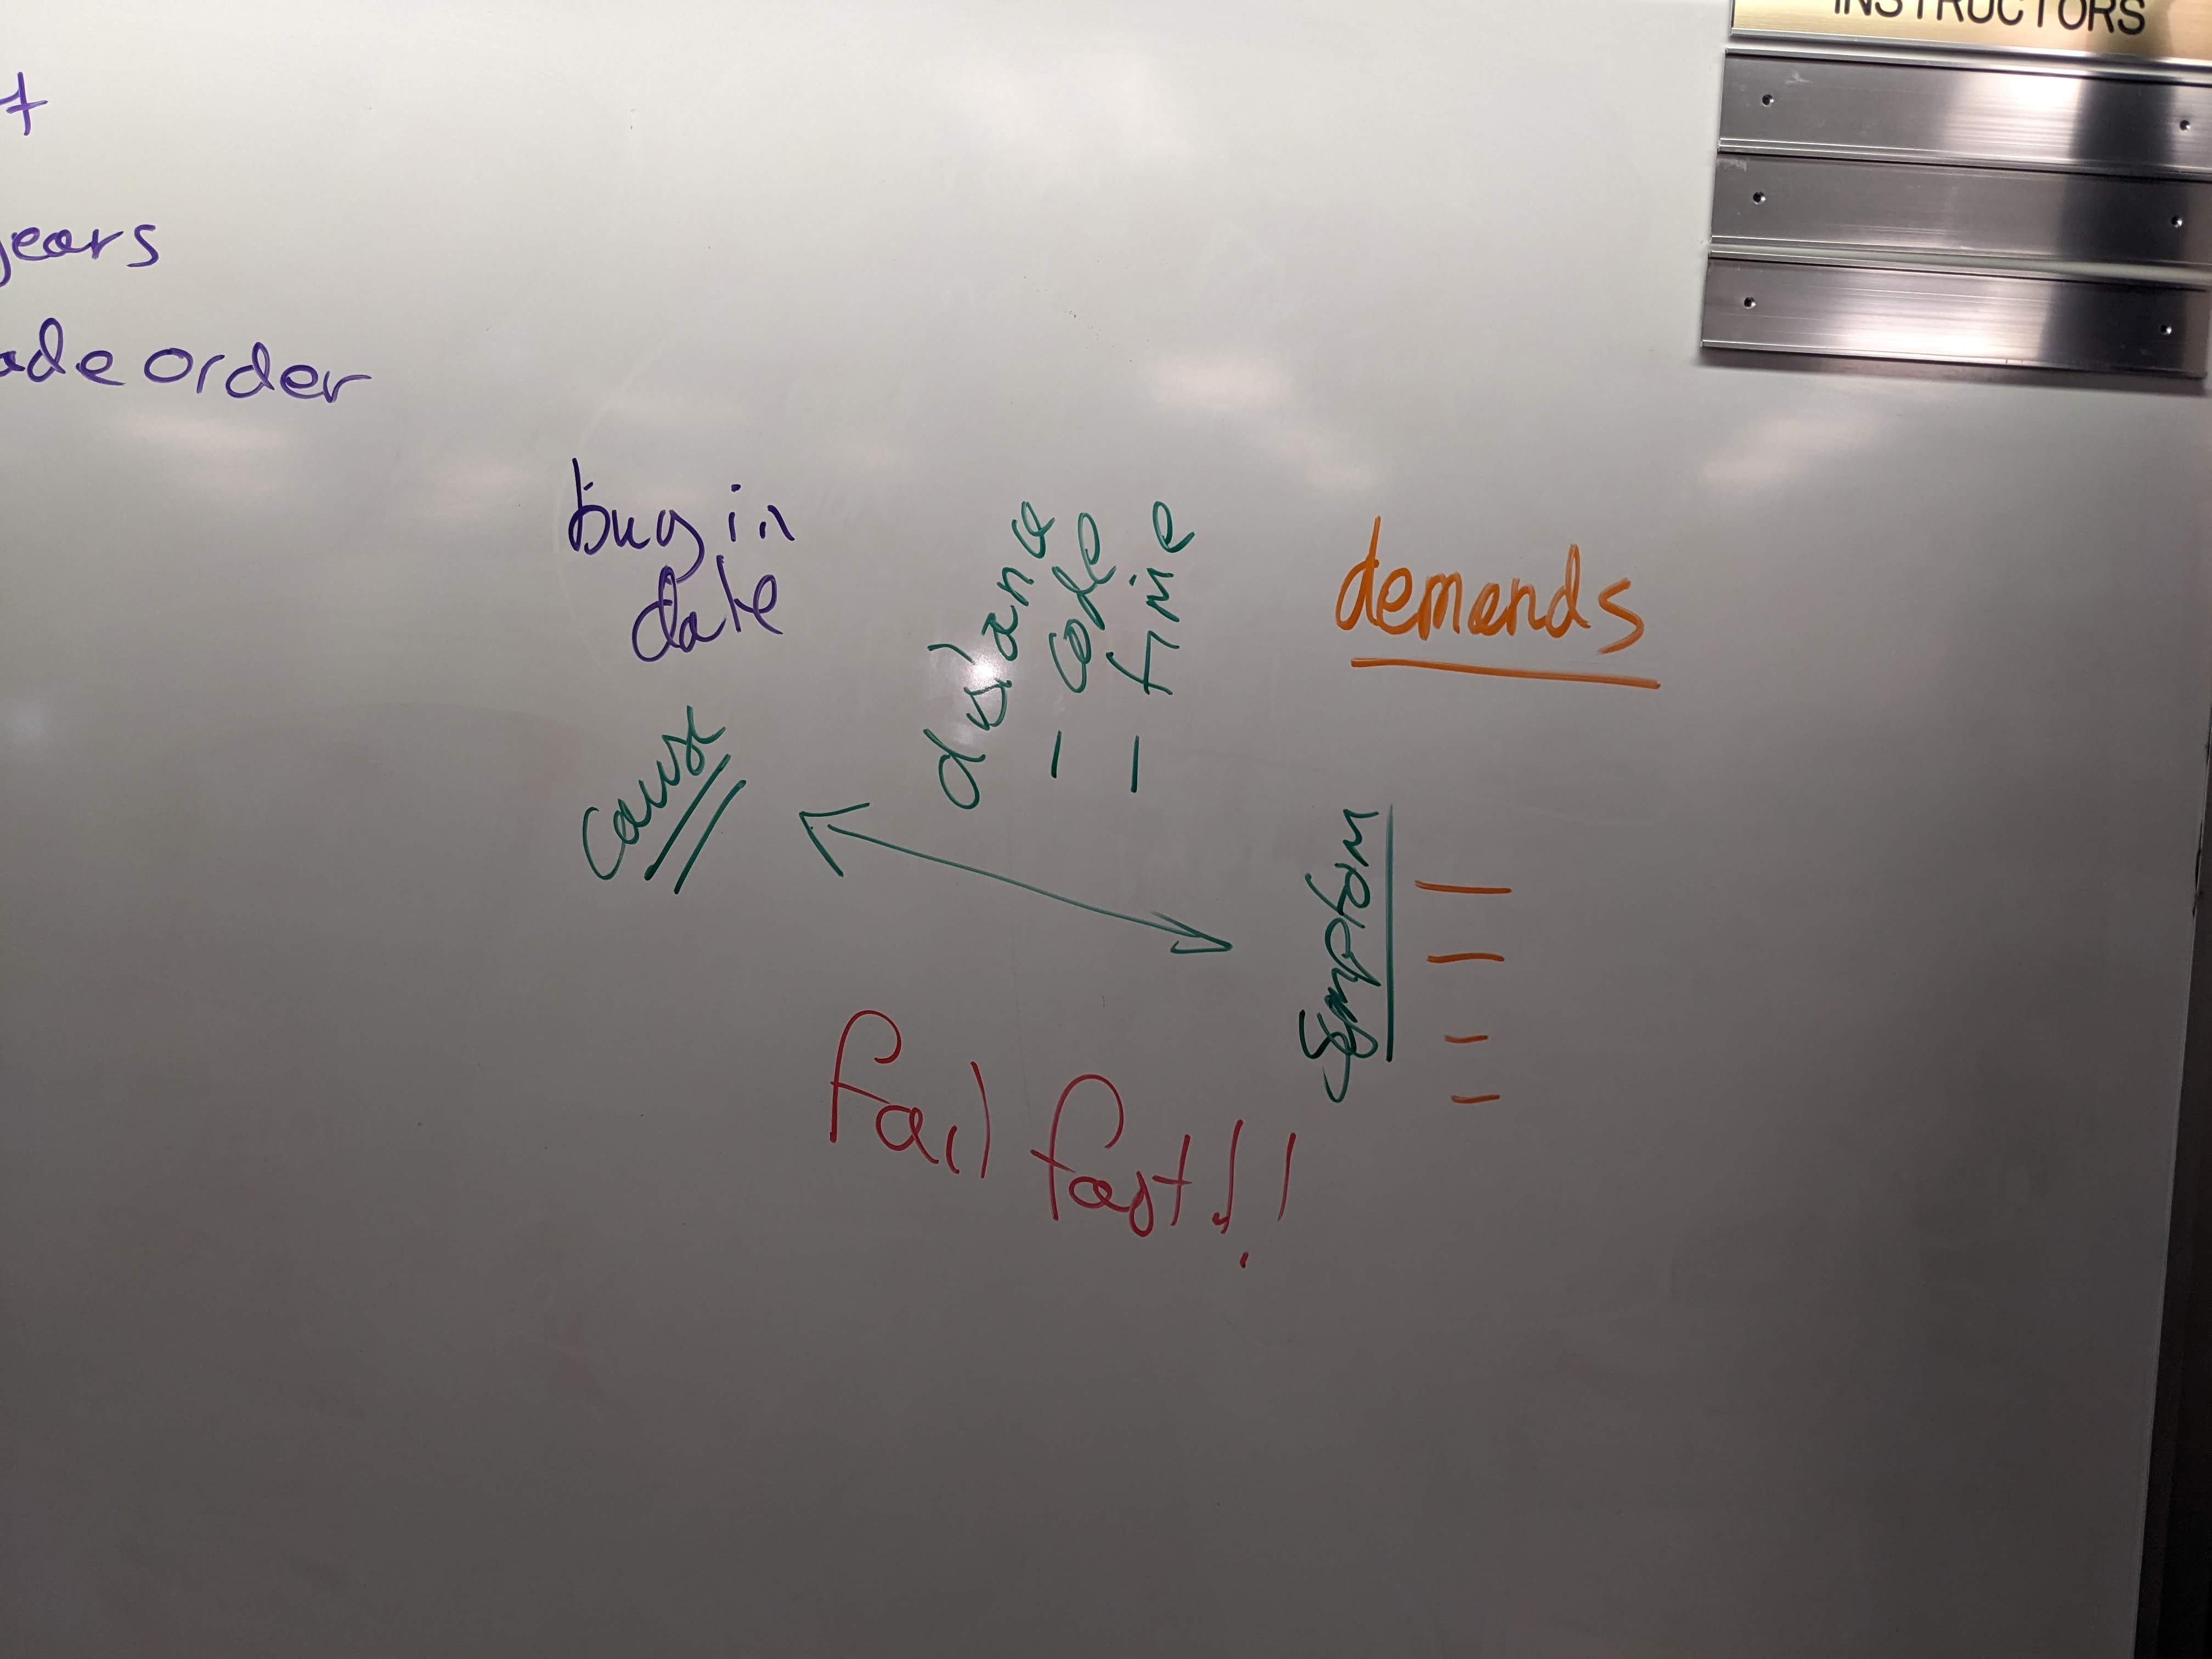 INSTRUCTORS
t
years
ade order
bug in
date
cause
distance
- code
- time
demands
Symptom
fail fast!!